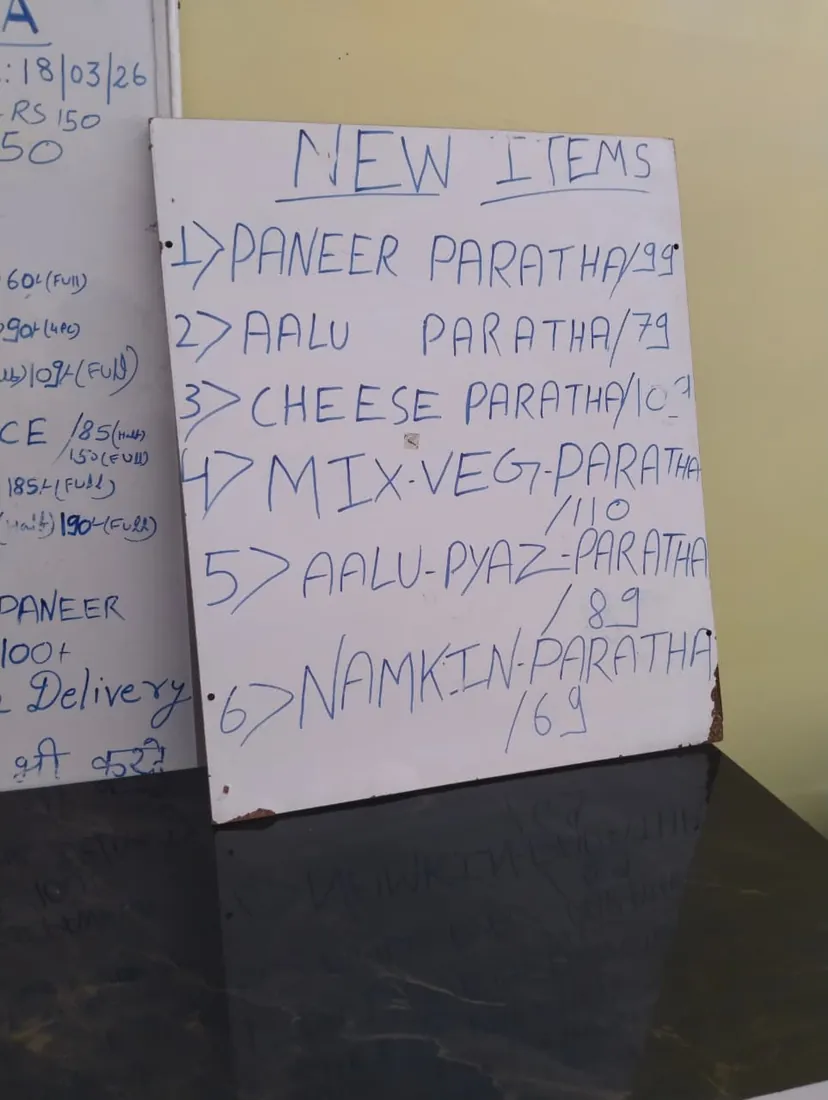 A
: 18/03/26
RS 150
50
60/-(Full)
90/-(4pc)
109/-(Full)
CE /85(Half)
150(FUll)
185/-(Full)
(Half) 190/-(Full)
PANEER
100/-
Delivery
भी करते
NEW ITEMS
1> PANEER PARATHA/99
2> AALU PARATHA/79
3> CHEESE PARATHA/109
4> MIX-VEG-PARATHA
/110
5> AALU-PYAZ-PARATHA
/89
6> NAMKIN-PARATHA
/69